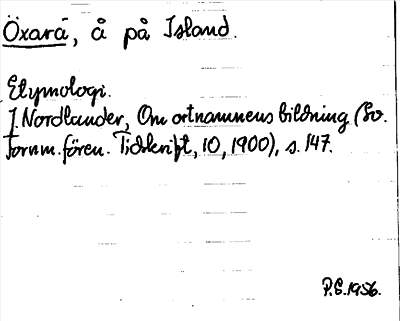 Öxará, å på Island.
Etymologi.
J. Nordlander, Om ortnamnens bildning (Sv.
fornm. fören. Tidskrift, 10, 1900), s. 147.
P.E. 1956.